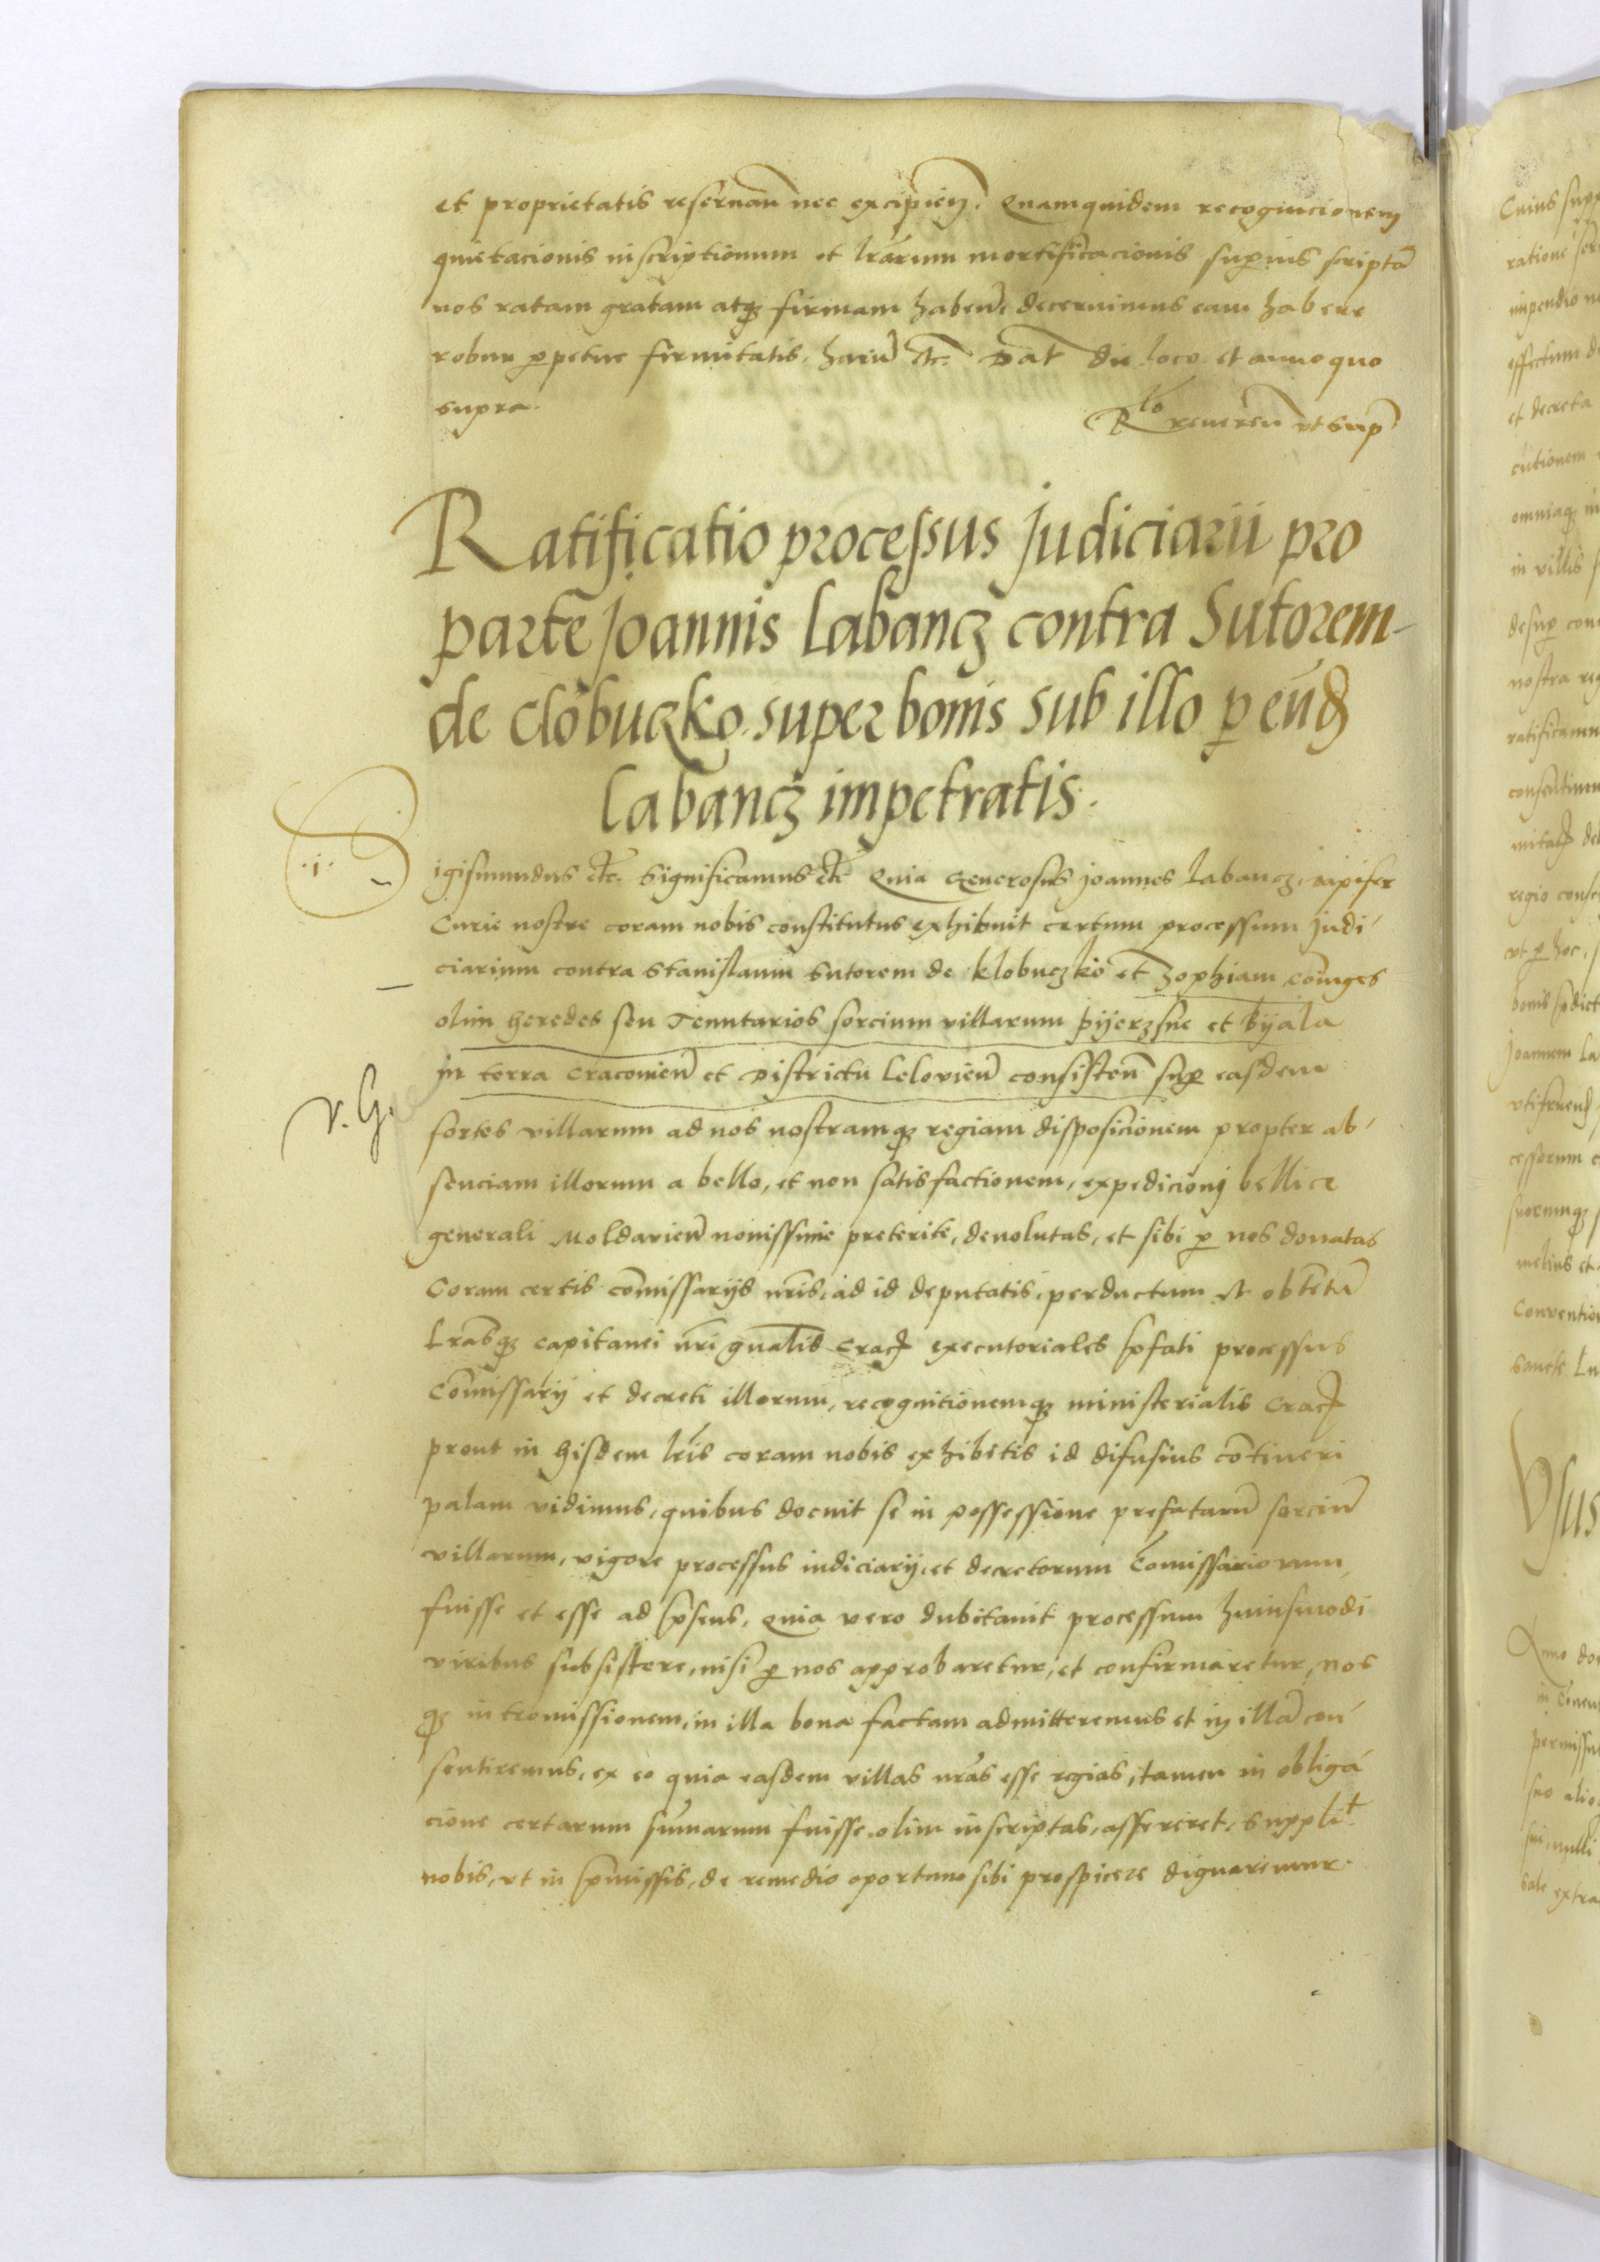 et proprietatis reservan̄ nec excipien̄. Quamquidem recognicionem
quietacionis inscriptionum et lrārum mortificacionis supius scriptā
nos ratam gratam atqꝫ firmam haben̄: decernimus eam habere
robur ꝑpetue firmitatis. hariū etc. Dat̄ die loco et anno quo
supra.
Rlo reveren̄ ut sup̄
Ratificatio processus Judiciarii pro
parte Joannis Labancz contra Sutorem
de Clobuczko super bonis sub illo ꝑ eūd
Labancz impetratis.
.i.
igismundus etc. Significamus etc Quia Generosus Joannes Labancz, dapifer
Curie nostre coram nobis constitutus exhibuit certum processum Judi
ciarium contra Stanislaum Sutorem de Klobuczko et Zophiam cōiuges
olim heredes seu Tenutarios sorcium villarum pijerzsne et bijala
in terra Cracovien̄ et Districtu Lelovien̄ consisten̄ suꝑ easdem
v. G.
sortes villarum ad nos nostramqꝫ regiam disposicionem propter ab
senciam illorum a bello, et non satisfactionem, expedicioni bellice
generali Moldavien̄ novissime preterite, devolutas, et sibi ꝑ nos donatas
Coram certis cōmissarijs nr̄is, ad id deputatis, perductum et obtētū
Lrāsqꝫ capitanei nr̄i gn̄alis Crac̄ executoriales p̄fati processus
Cōmissarij et decreti illorum, recognitionemqꝫ ministerialis Crac̄
prout in hisdem lr̄is coram nobis exhibitis id difusius cōtineri
palam vidimus, quibus docuit se in possessione prefatarū sorciū
villarum, vigore processus iudiciarij, et decretorum Cōmissariorum,
fuisse et esse ad p̄sens. Quia vero dubitavit processum huiusmodi
viribus subsistere, nisi ꝑ nos approbaretur, et confirmaretur, nos
qꝫ intromissionem, in illa bona factam admitteremus et in illā con
sentiremus, ex eo quia easdem villas nr̄as esse regias, tamen in obliga
cione certarum sūmarum fuisse olim inscriptas, assereret, Supplit
nobis, ut in p̄missis, de remedio oportuno sibi prospicere dignaremur.